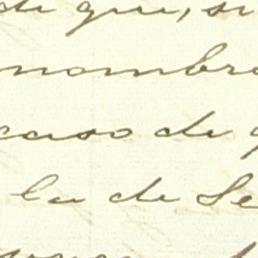 de que, si
nombre
caso de q
la de Se